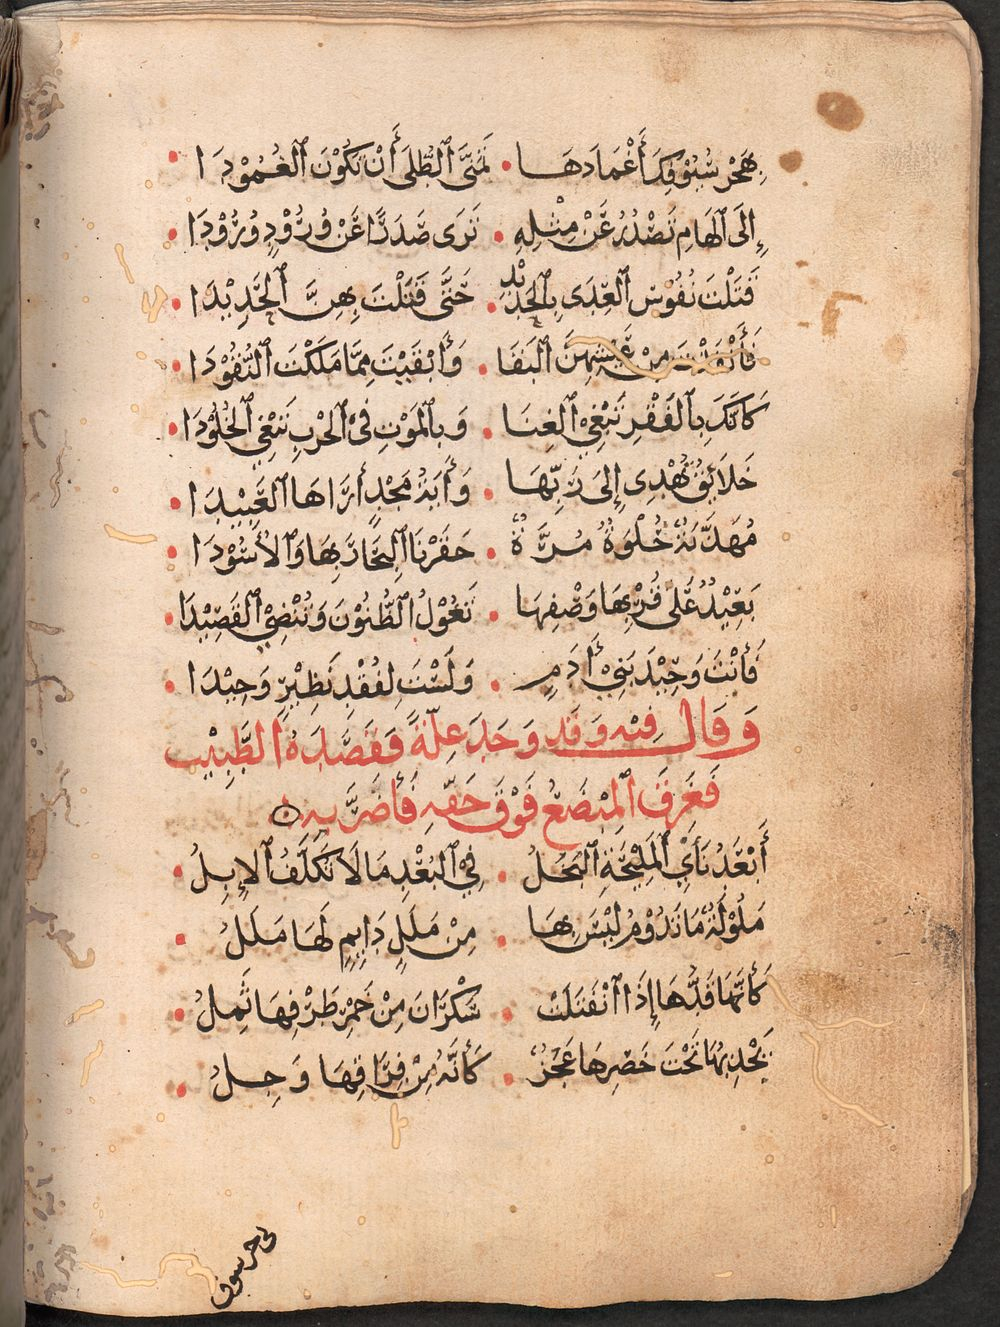 بِهَجْرِ سُيُوْفِكَ أَغْمَادَهَا • تَمَنَّى ٱلطُّلَى أَنْ تَكُوْنَ ٱلغُمُوْدَا •
إِلَى ٱلهَامِ تَصْدُرُ عَنْ مِثْلِهِ • تَرَى صَدَرًا عَنْ وُرُوْدٍ وُرُوْدَا •
قَتَلْتَ نُفُوْسَ ٱلعِدَى بِٱلحَدِيْدِ • حَتَّى قَتَلْتَ بِهِنَّ ٱلحَدِيْدَا •
فَأَنْفَدْتَ مِنْ عَيْشِهِنَّ ٱلبَقَا • وَأَبْقَيْتَ مِمَّا مَلَكْتَ ٱلنُّفُوْدَا •
كَأَنَّكَ بِٱلفَقْرِ تَبْغِي ٱلغِنَا • وَبِٱلمَوْتِ فِي ٱلحَرْبِ تَبْغِي ٱلخُلُوْدَا •
خَلَائِقُ تُهْدِى إِلَى رَبِّهَا • وَأَيَةُ مَجْدٍ أَرَاهَا ٱلعَبِيْدَا •
مُهَذَّبَةٌ حُلْوَةٌ مُرَّةٌ • حَقَرْنَا ٱلبِحَارَ بِهَا وَٱلأُسُوْدَا •
بَعِيْدٌ عَلَى قُرْبِهَا وَصْفُهَا • تَغُوْلُ ٱلظُّنُوْنَ وَتُنْضِي ٱلقَصِيْدَا •
فَأَنْتَ وَحِيْدُ بَنِيْ أَدَمٍ • وَلَسْتَ لِفَقْدِ نَظِيْرٍ وَحِيْدَا •
وَقَالَ فِيْهِ وَقَدْ وَجَدَ عِلَّةً فَفَصَدَهُ ٱلطَّبِيْبُ
فَغَرَّقَ ٱلمِبْضَعَ فَوْقَ حَقِّهِ فَأَضَرَّ بِهِ
أَبْعَدُ نَأْيِ ٱلمَلِيْحَةِ ٱلبَخَلُ • فِي ٱلبُعْدِ مَا لَا تُكَلَّفُ ٱلإِبِلُ •
مَلُوْلَةٌ مَا تَدُوْمُ لَيْسَ بِهَا • مِنْ مَلَلٍ دَايِمٍ لَهَا مَلَلُ •
كَأَنَّمَا قَدُّهَا إِذَا ٱنْفَتَلَتْ • سَكْرَانُ مِنْ خَمْرِ طَرْفِهَا ثَمِلُ •
يَجْذِبُهَا تَحْتَ خَصْرِهَا عَجُزٌ • كَأَنَّهُ مِنْ فِرَاقِهَا وَجِلُ •
بى حر سوق